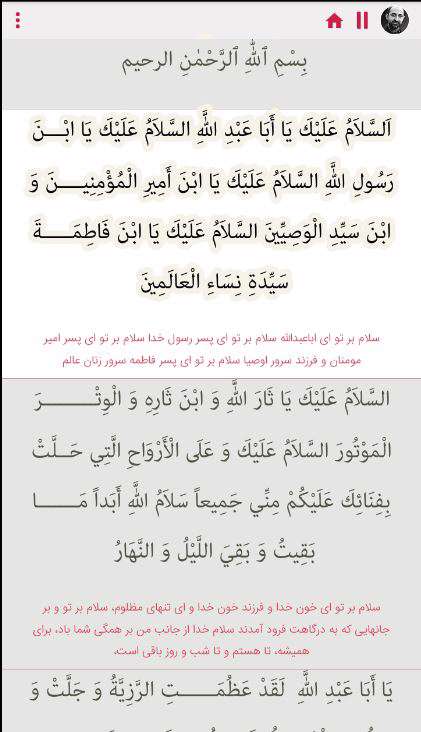 بِسْمِ ٱللَّٰهِ ٱلرَّحْمَٰنِ الرحیم
اَلسَّلاَمُ عَلَيْكَ يَا أَبَا عَبْدِ اللَّهِ السَّلاَمُ عَلَيْكَ يَا ابْنَ
رَسُولِ اللَّهِ السَّلاَمُ عَلَيْكَ يَا ابْنَ أَمِيرِ الْمُؤْمِنِينَ وَ
ابْنَ سَيِّدِ الْوَصِيِّينَ السَّلاَمُ عَلَيْكَ يَا ابْنَ فَاطِمَةَ
سَيِّدَةِ نِسَاءِ الْعَالَمِينَ
سلام بر تو ای اباعبدالله سلام بر تو ای پسر رسول خدا سلام بر تو ای پسر امیر
مومنان و فرزند سرور اوصیا سلام بر تو ای پسر فاطمه سرور زنان عالم
السَّلاَمُ عَلَيْكَ يَا ثَارَ اللَّهِ وَ ابْنَ ثَارِهِ وَ الْوِتْرَ
الْمَوْتُورَ السَّلاَمُ عَلَيْكَ وَ عَلَى الْأَرْوَاحِ الَّتِي حَلَّتْ
بِفِنَائِكَ عَلَيْكُمْ مِنِّي جَمِيعاً سَلاَمُ اللَّهِ أَبَداً مَا
بَقِيتُ وَ بَقِيَ اللَّيْلُ وَ النَّهَارُ
سلام بر تو ای خون خدا و فرزند خون خدا و ای تنهای مظلوم، سلام بر تو و بر
جانهایی که به درگاهت فرود آمدند سلام خدا از جانب من بر همگی شما باد، برای
همیشه، تا هستم و تا شب و روز باقی است،
يَا أَبَا عَبْدِ اللَّهِ لَقَدْ عَظُمَتِ الرَّزِيَّةُ وَ جَلَّتْ وَ